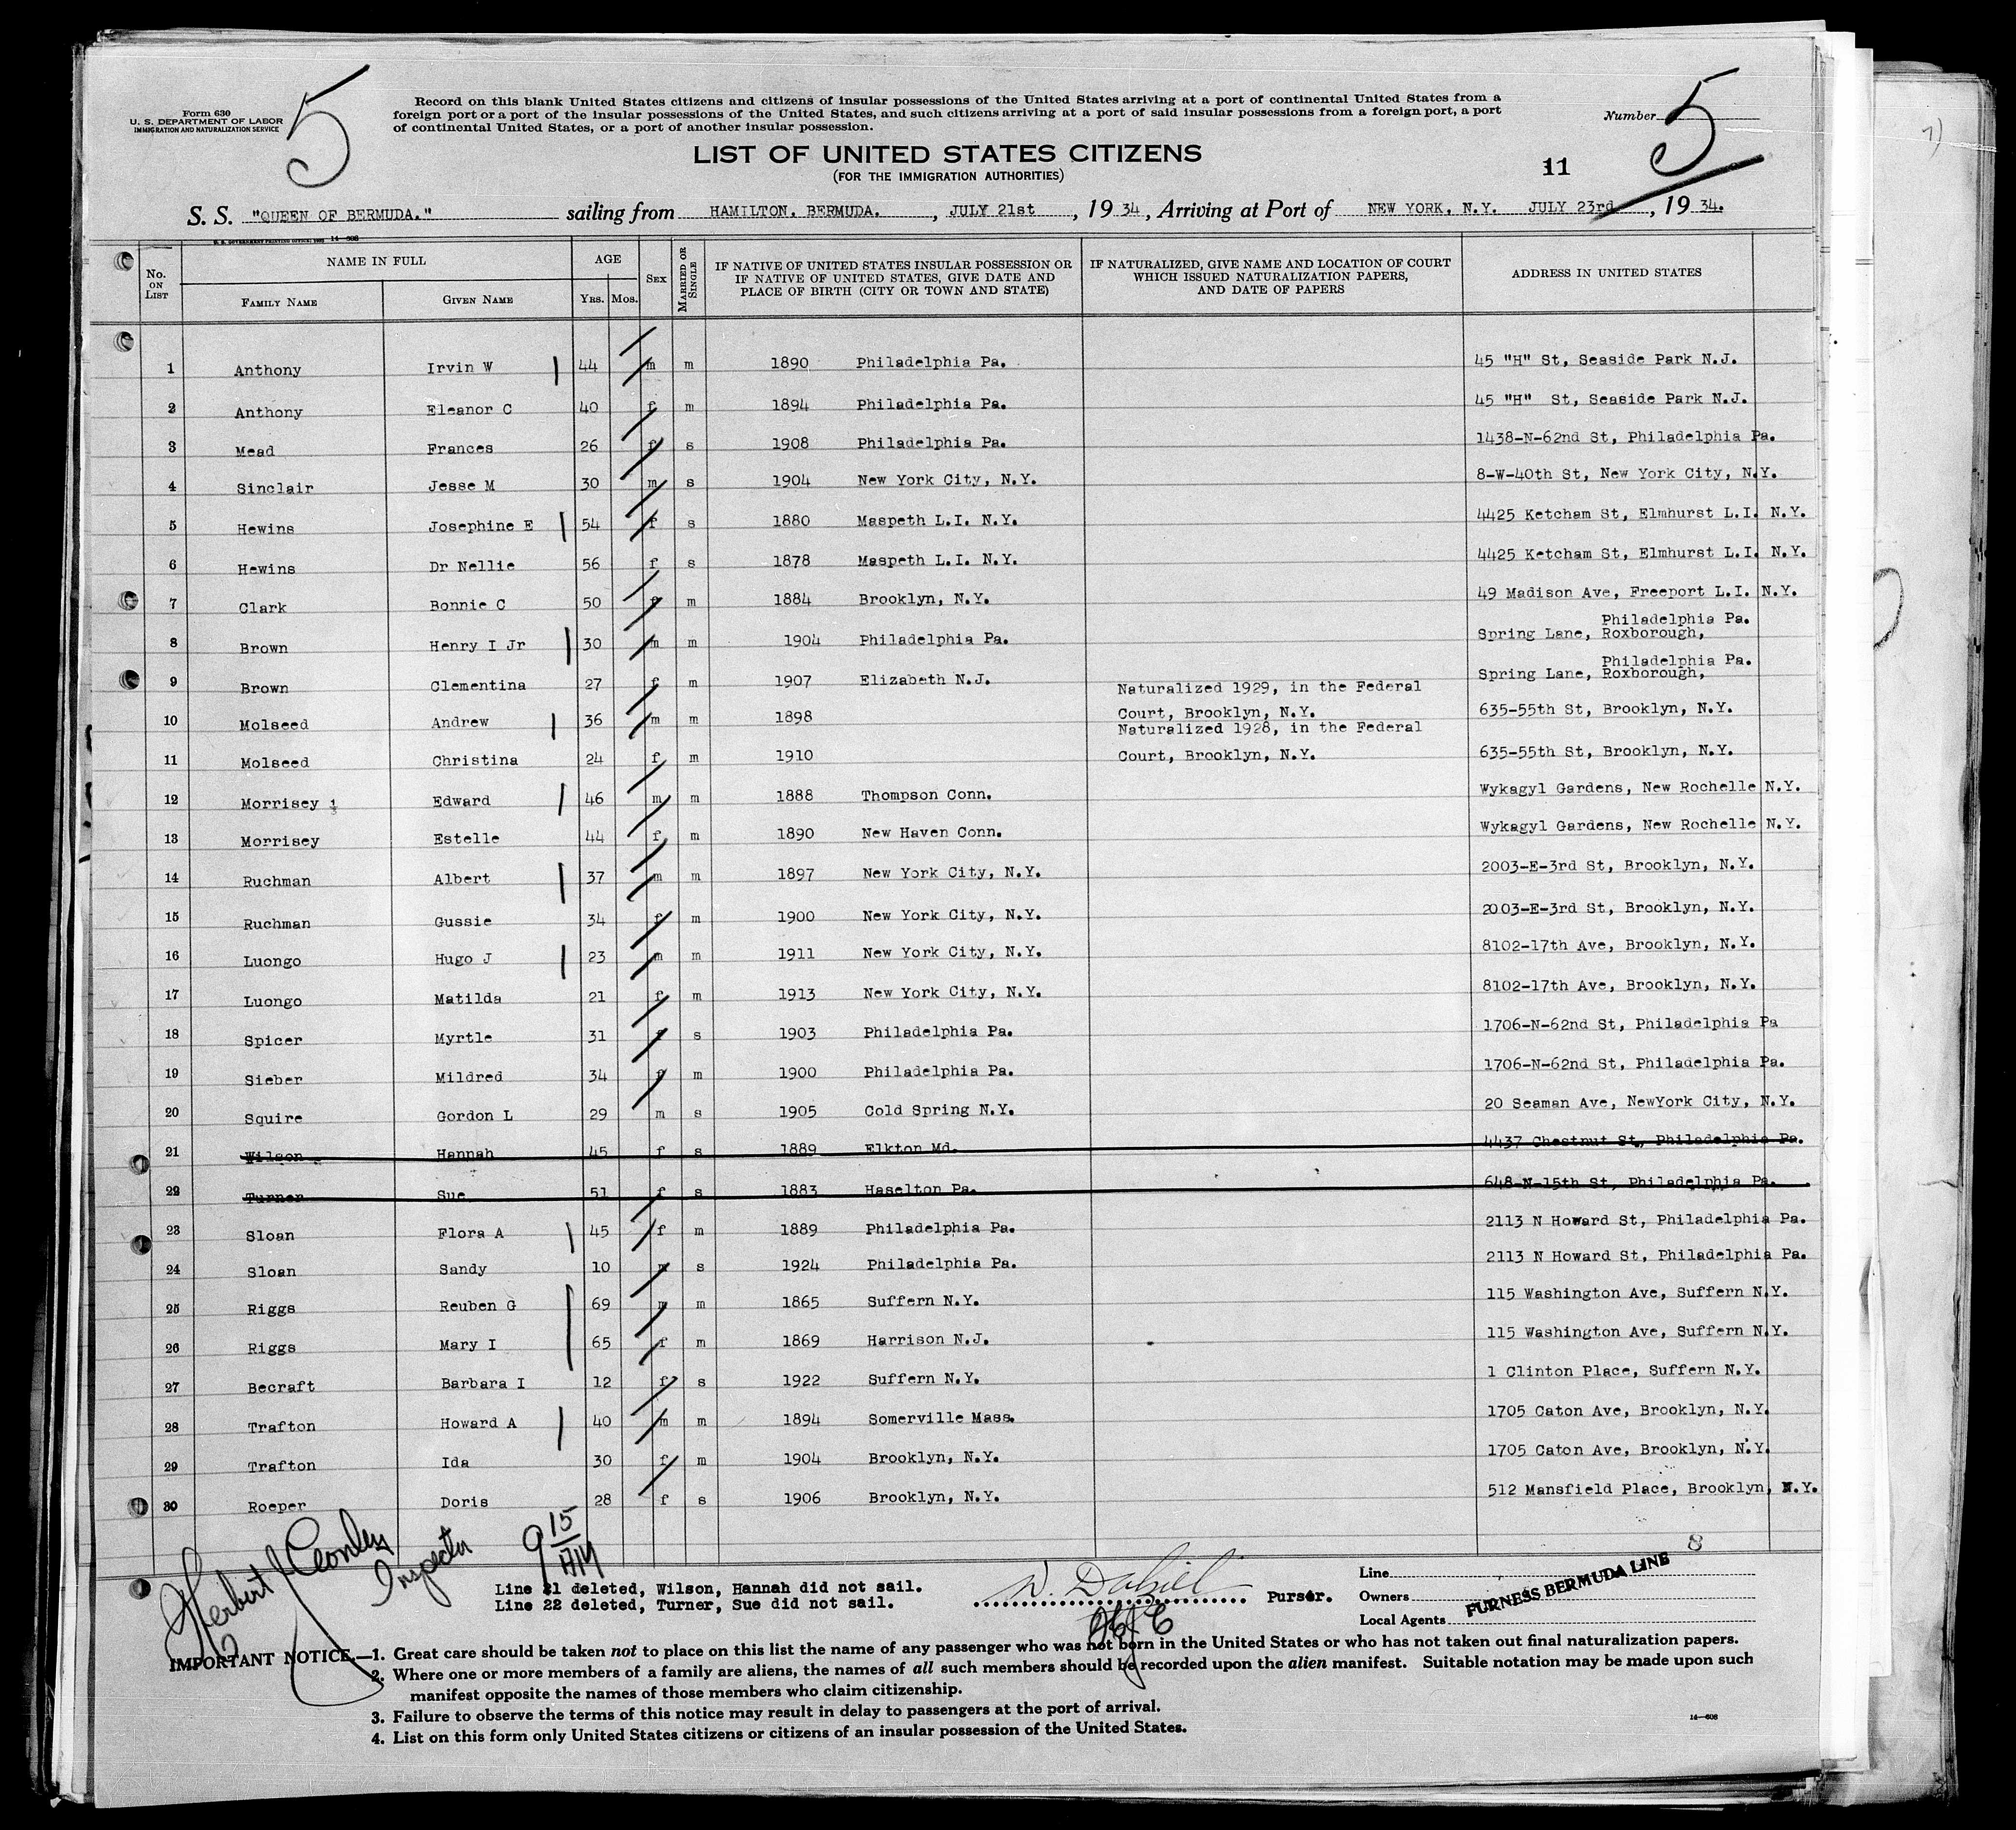 5
5
Form 630
U. S. DEPARTMENT OF LABOR
IMMIGRATION AND NATURALIZATION SERVICE
Record on this blank United States citizens and citizens of insular possessions of the United States arriving at a port of continental United States from a
foreign port or a port of the insular possessions of the United States, and such citizens arriving at a port of said insular possessions from a foreign port, a port
of continental United States, or a port of another insular possession.
Number
LIST OF UNITED STATES CITIZENS
(FOR THE IMMIGRATION AUTHORITIES)
11
S. S. "QUEEN OF BERMUDA." sailing from HAMILTON. BERMUDA. , JULY 21st , 19 34 , Arriving at Port of NEW YORK, N.Y. JULY 23rd , 19 34.
14—608
No. ON LIST NAME IN FULL AGE SEX MARRIED OR SINGLE IF NATIVE OF UNITED STATES INSULAR POSSESSION OR IF NATIVE OF UNITED STATES, GIVE DATE AND PLACE OF BIRTH (CITY OR TOWN AND STATE) IF NATURALIZED, GIVE NAME AND LOCATION OF COURT WHICH ISSUED NATURALIZATION PAPERS, AND DATE OF PAPERS ADDRESS IN UNITED STATES
FAMILY NAME GIVEN NAME YRS. MOS.
1 Anthony Irvin W 44 m m 1890 Philadelphia Pa. 45 "H" St, Seaside Park N.J.
2 Anthony Eleanor C 40 f m 1894 Philadelphia Pa. 45 "H" St, Seaside Park N.J.
3 Mead Frances 26 f s 1908 Philadelphia Pa. 1438-N-62nd St, Philadelphia Pa.
4 Sinclair Jesse M 30 m s 1904 New York City, N.Y. 8-W-40th St, New York City, N.Y.
5 Hewins Josephine E 54 f s 1880 Maspeth L.I. N.Y. 4425 Ketcham St, Elmhurst L.I. N.Y.
6 Hewins Dr Nellie 56 f s 1878 Maspeth L.I. N.Y. 4425 Ketcham St, Elmhurst L.I. N.Y.
7 Clark Bonnie C 50 f m 1884 Brooklyn, N.Y. 49 Madison Ave, Freeport L.I. N.Y.
Philadelphia Pa.
8 Brown Henry I Jr 30 m m 1904 Philadelphia Pa. Spring Lane, Roxborough,
Philadelphia Pa.
9 Brown Clementina 27 f m 1907 Elizabeth N.J. Spring Lane, Roxborough,
Naturalized 1929, in the Federal
10 Molseed Andrew 36 m m 1898 Court, Brooklyn, N.Y. 635-55th St, Brooklyn, N.Y.
Naturalized 1928, in the Federal
11 Molseed Christina 24 f m 1910 Court, Brooklyn, N.Y. 635-55th St, Brooklyn, N.Y.
12 Morrisey Edward 46 m m 1888 Thompson Conn. Wykagyl Gardens, New Rochelle N.Y.
13 Morrisey Estelle 44 f m 1890 New Haven Conn. Wykagyl Gardens, New Rochelle N.Y.
14 Ruchman Albert 37 m m 1897 New York City, N.Y. 2003-E-3rd St, Brooklyn, N.Y.
15 Ruchman Gussie 34 f m 1900 New York City, N.Y. 2003-E-3rd St, Brooklyn, N.Y.
16 Luongo Hugo J 23 m m 1911 New York City, N.Y. 8102-17th Ave, Brooklyn, N.Y.
17 Luongo Matilda 21 f m 1913 New York City, N.Y. 8102-17th Ave, Brooklyn, N.Y.
18 Spicer Myrtle 31 f s 1903 Philadelphia Pa. 1706-N-62nd St, Philadelphia Pa
19 Sieber Mildred 34 f m 1900 Philadelphia Pa. 1706-N-62nd St, Philadelphia Pa.
20 Squire Gordon L 29 m s 1905 Cold Spring N.Y. 20 Seaman Ave, NewYork City, N.Y.
21 Wilson Hannah 45 f s 1889 Elkton Md. 4437 Chestnut St, Philadelphia Pa.
22 Turner Sue 51 f s 1883 Haselton Pa. 648-N-15th St, Philadelphia Pa.
23 Sloan Flora A 45 f m 1889 Philadelphia Pa. 2113 N Howard St, Philadelphia Pa.
24 Sloan Sandy 10 m s 1924 Philadelphia Pa. 2113 N Howard St, Philadelphia Pa.
25 Riggs Reuben G 69 m m 1865 Suffern N.Y. 115 Washington Ave, Suffern N.Y.
26 Riggs Mary I 65 f m 1869 Harrison N.J. 115 Washington Ave, Suffern N.Y.
27 Becraft Barbara I 12 f s 1922 Suffern N.Y. 1 Clinton Place, Suffern N.Y.
28 Trafton Howard A 40 m m 1894 Somerville Mass. 1705 Caton Ave, Brooklyn, N.Y.
29 Trafton Ida 30 f m 1904 Brooklyn, N.Y. 1705 Caton Ave, Brooklyn, N.Y.
30 Roeper Doris 28 f s 1906 Brooklyn, N.Y. 512 Mansfield Place, Brooklyn, N.Y.
8
Herbert J
Inspector
9 15 AM
Line 21 deleted, Wilson, Hannah did not sail.
Line 22 deleted, Turner, Sue did not sail.
Purser.
Line
Owners FURNESS BERMUDA LINE
Local Agents
IMPORTANT NOTICE.—1. Great care should be taken not to place on this list the name of any passenger who was not born in the United States or who has not taken out final naturalization papers.
2. Where one or more members of a family are aliens, the names of all such members should be recorded upon the alien manifest. Suitable notation may be made upon such
manifest opposite the names of those members who claim citizenship.
3. Failure to observe the terms of this notice may result in delay to passengers at the port of arrival.
4. List on this form only United States citizens or citizens of an insular possession of the United States.
14—608